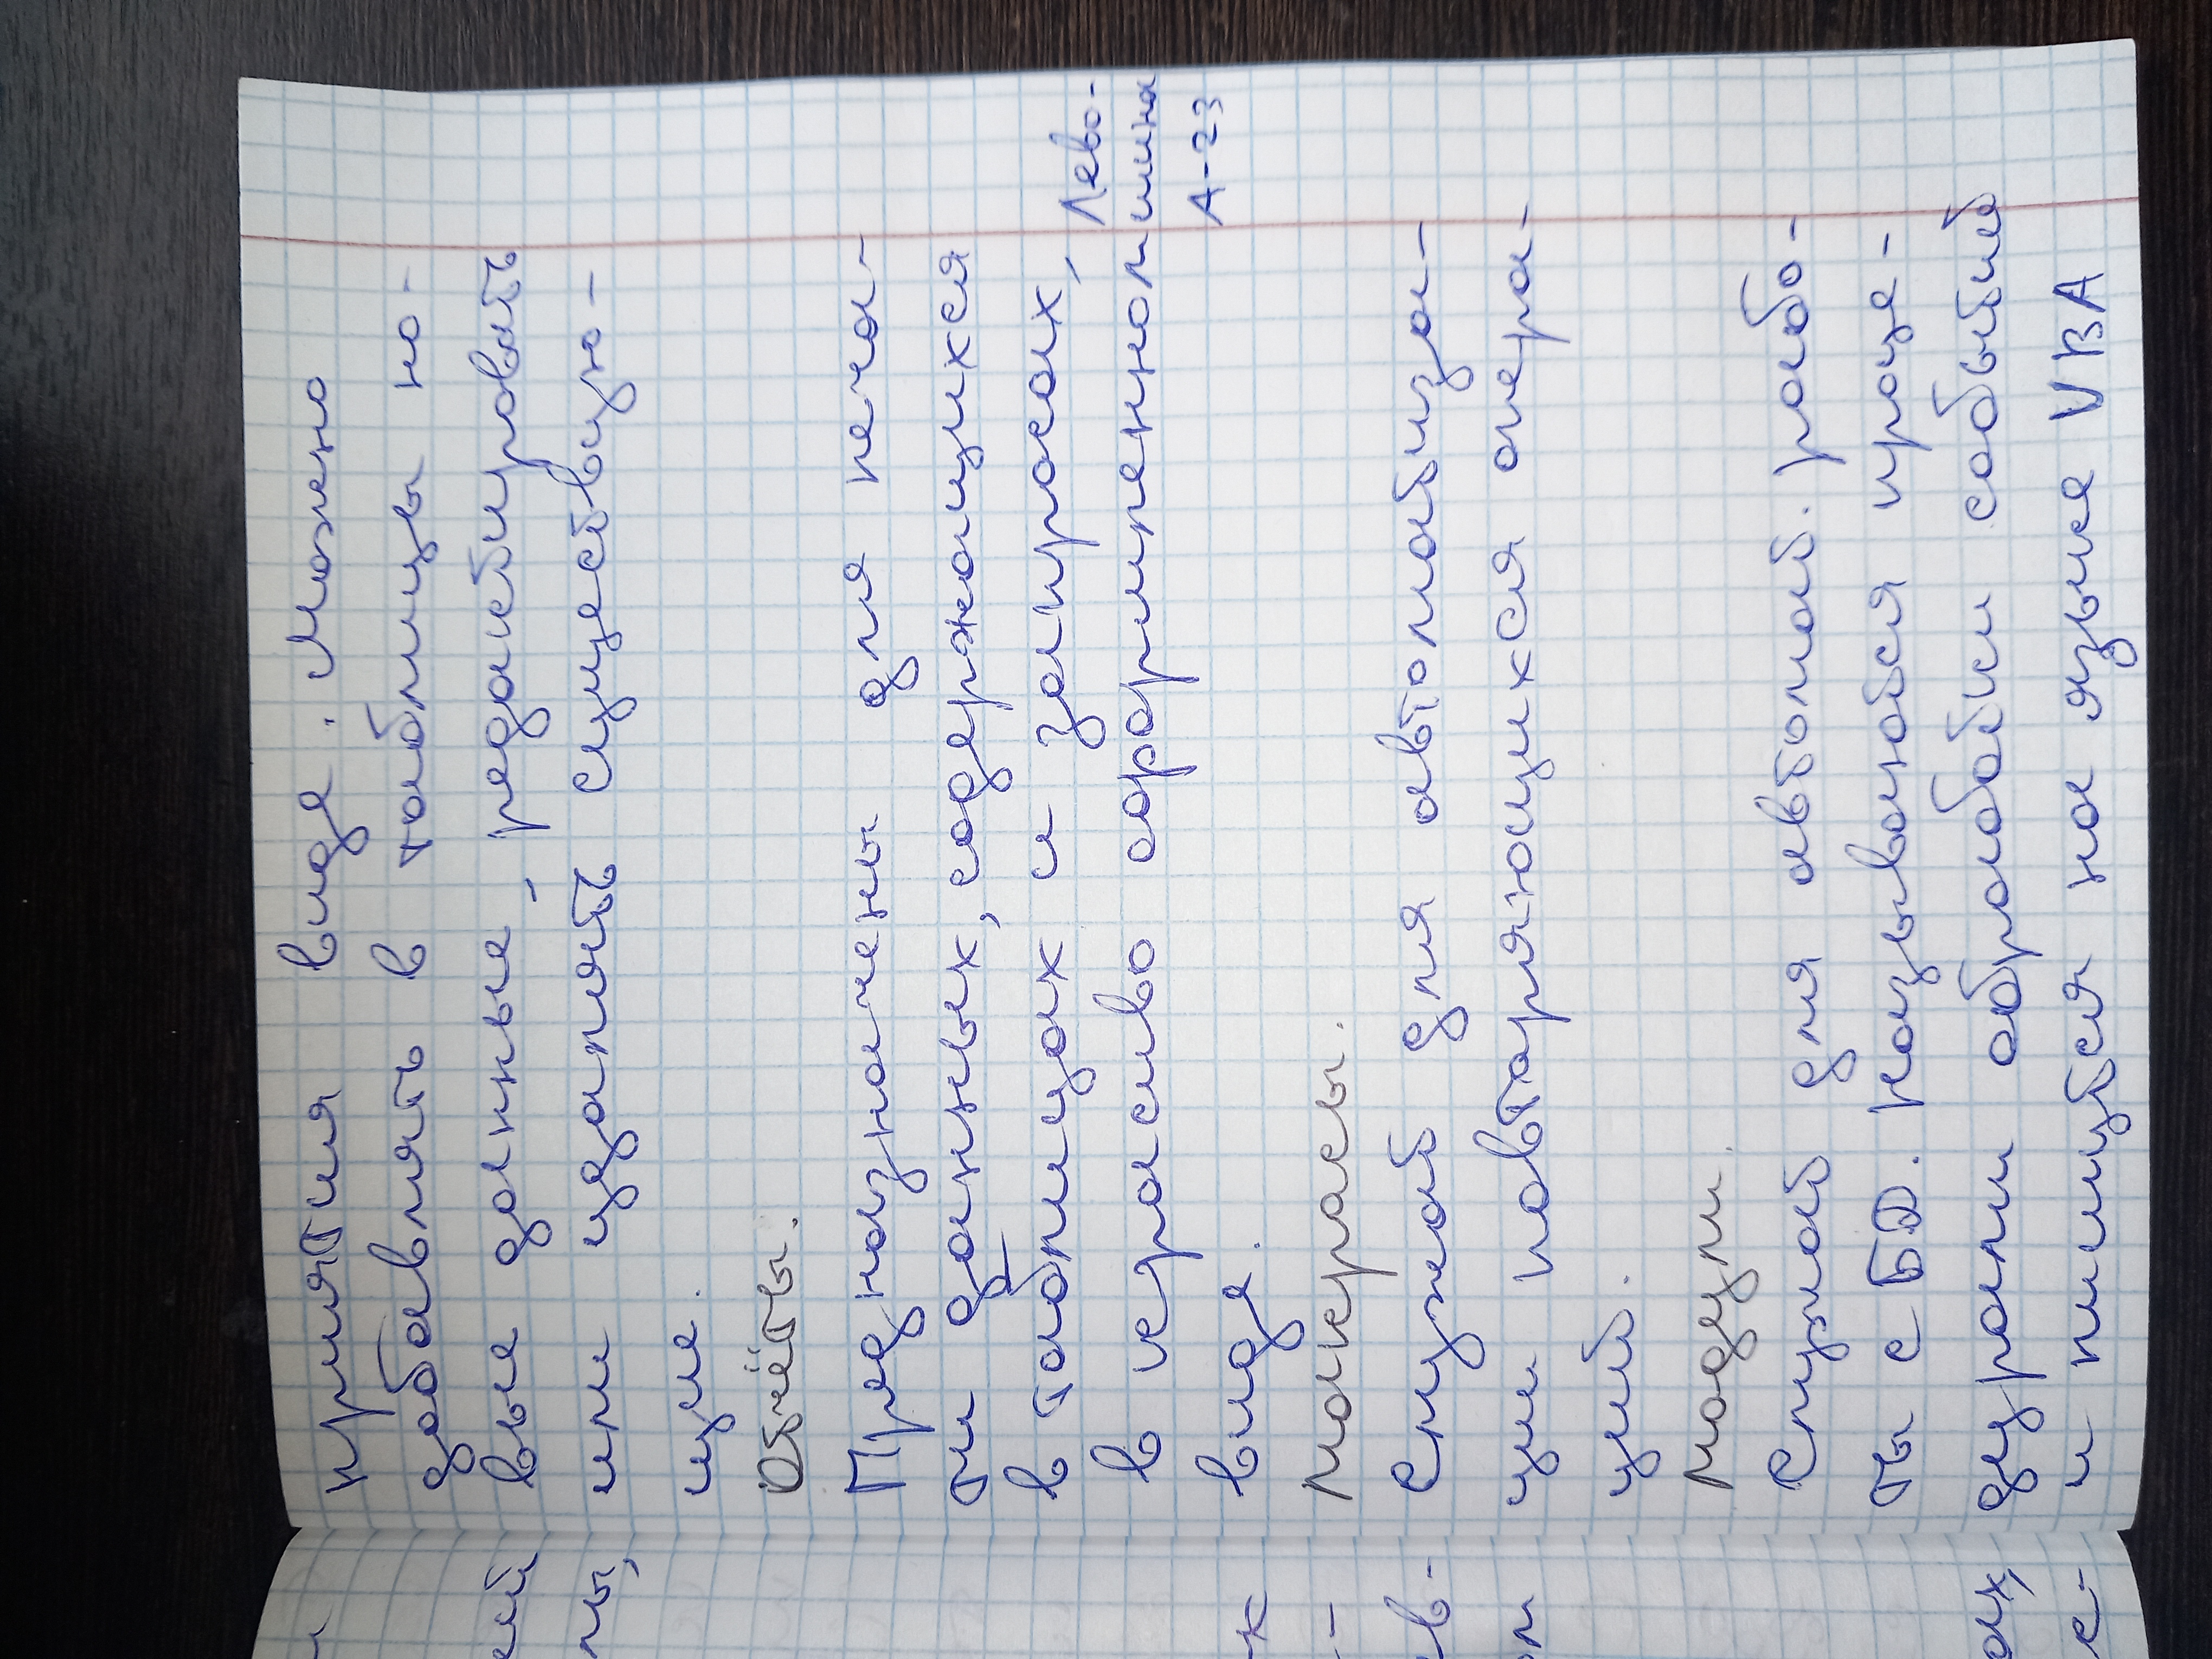 приятия виде. Можно
добавлять в таблицы но-
вые данные, редактировать
или удалять существую-
щие.
Отчёты.
Предназначены для печа-
ти данных, содержащихся
в таблицах и запросах,
в красиво оформленном
виде.
Макерасы.
Служат для автоматиза-
ции повторяющихся опера-
ций.
Модули.
Служат для автомат. рабо-
ты с БД. Называются проце-
дурами обработки событий
и пишутся на языке VBA
Лево-
шина
А-23